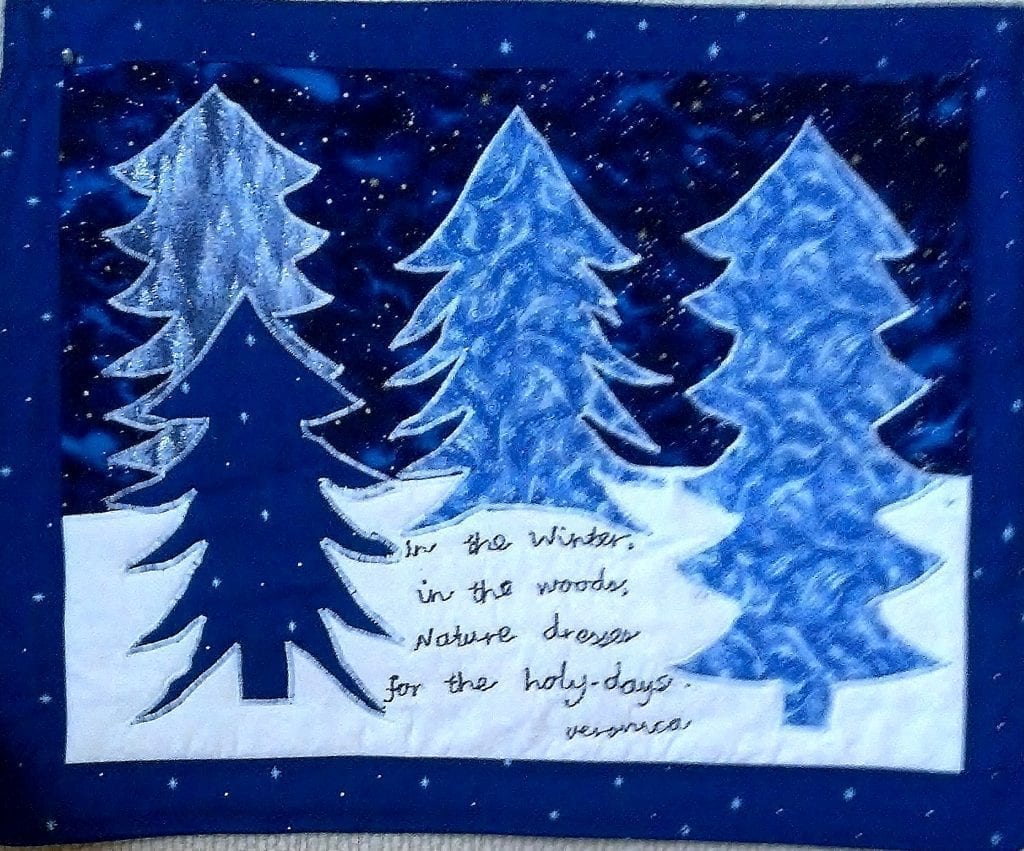 in the winter,
in the woods,
Nature dresses
for the holy-days.
veronica